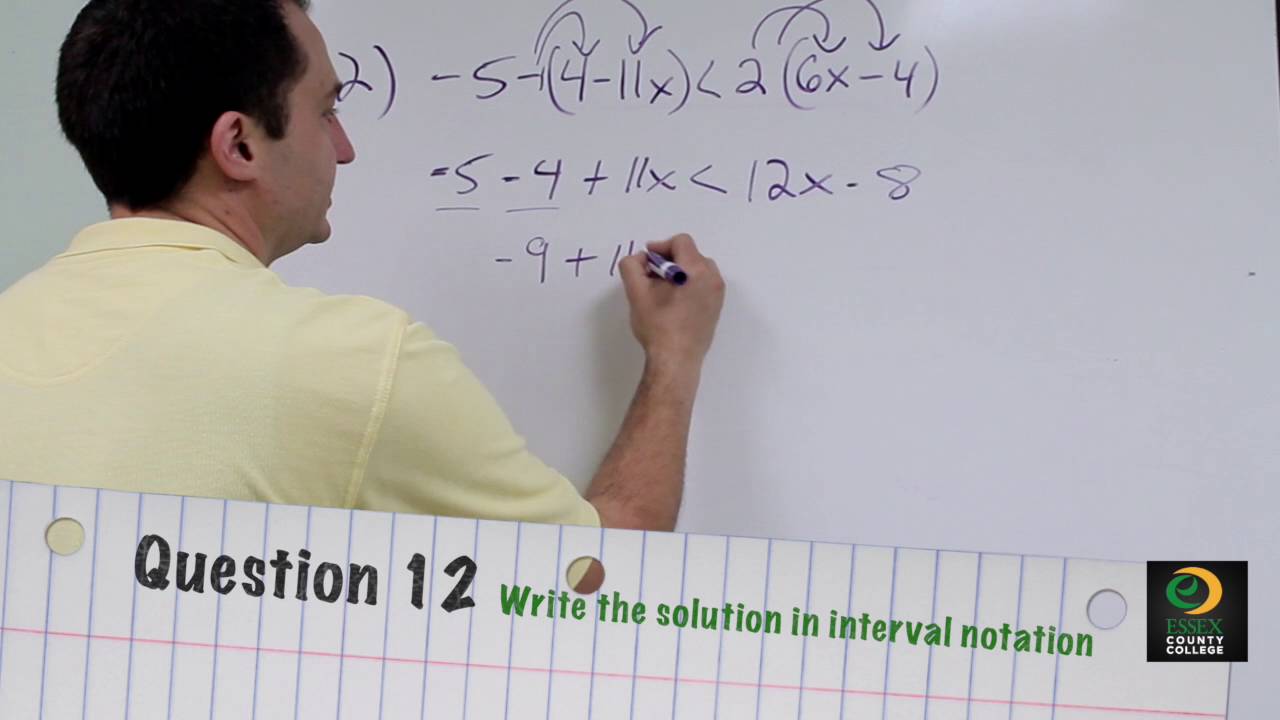 2) -5-1(4-11x)<2(6x-4)
-5-4+11x<12x-8
-9+11
Question 12 Write the solution in interval notation
ESSEX
COUNTY
COLLEGE